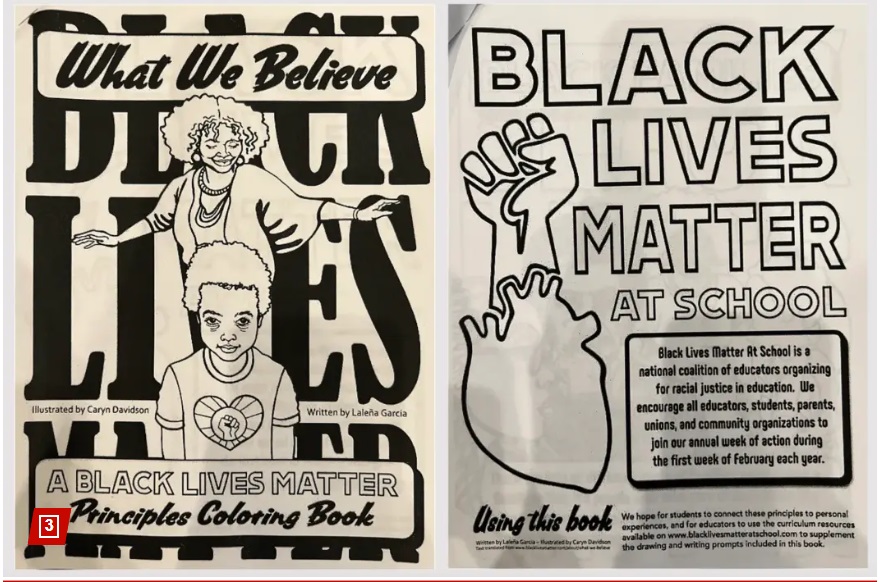 BLACK
What We Believe
BLACK
LIVES
Illustrated by Caryn Davidson
Written by Laleña Garcia
MATTER
A BLACK LIVES MATTER
Principles Coloring Book
MATTER
3
BLACK
LIVES
MATTER
AT SCHOOL
Black Lives Matter At School is a
national coalition of educators organizing
for racial justice in education. We
encourage all educators, students, parents,
unions, and community organizations to
join our annual week of action during
the first week of February each year.
Using this book
Written by Laleña Garcia - Illustrated by Caryn Davidson
We hope for students to connect these principles to personal
experiences, and for educators to use the curriculum resources
available on www.blacklivesmatteratschool.com to supplement
the drawing and writing prompts included in this book.